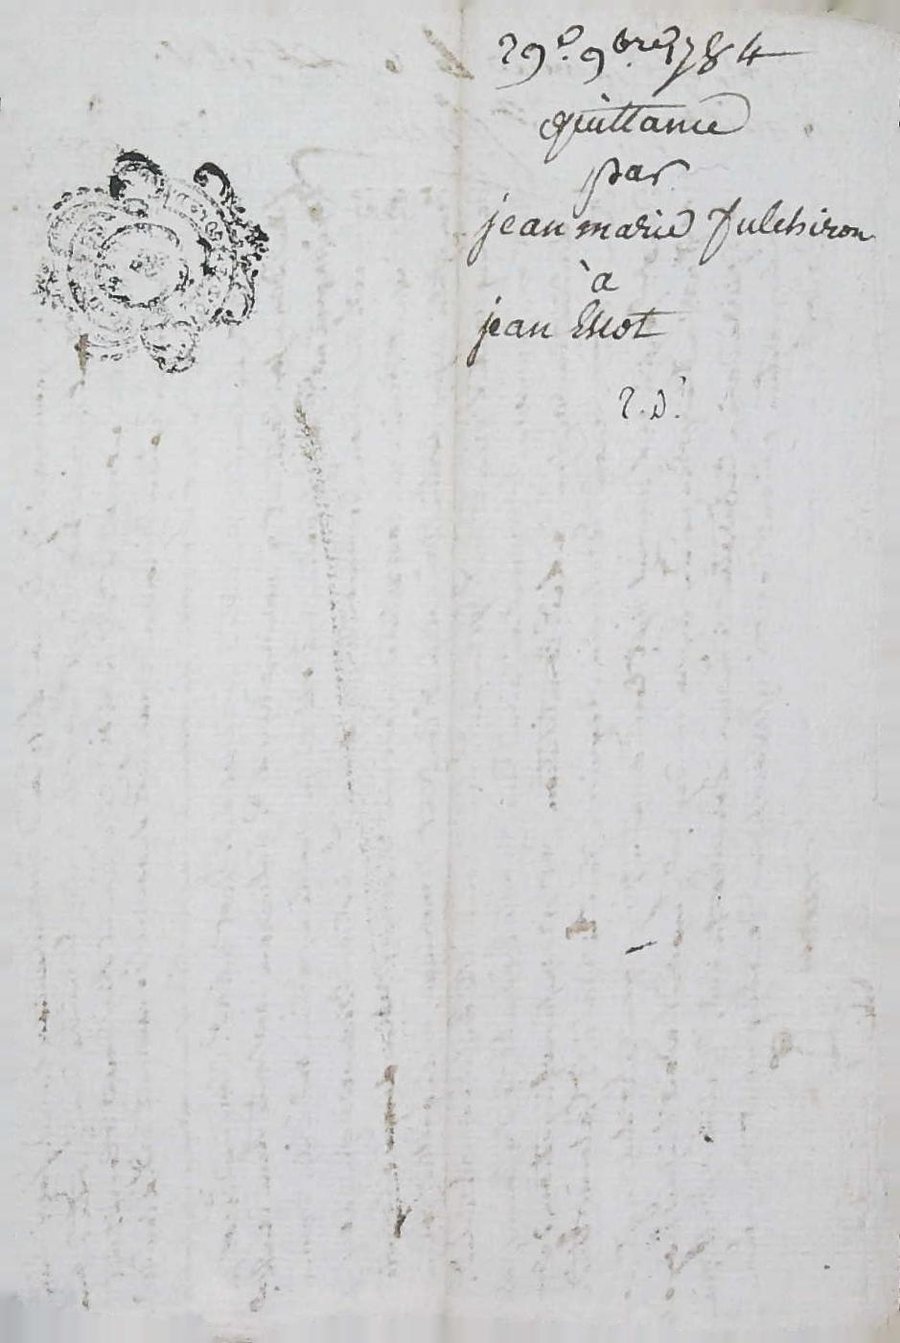 29e 9bre 1784
quittance
par
jean marie fulchiron
à
jean
2. d.